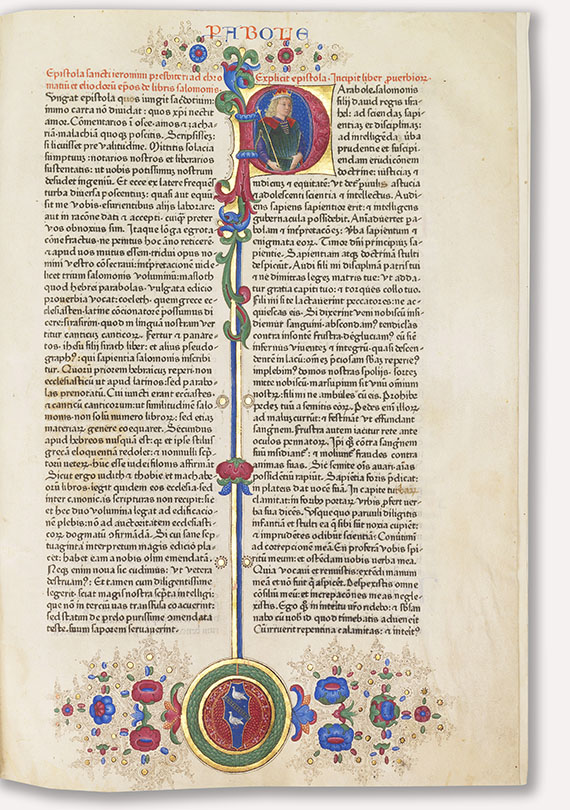 PABOLE
Epistola sancti ieronimi presbiteri ad chro
matiũ et eliodorũ epos de libris salomonis
Vngat epistola quos iungit sacdotium:
immo carta nõ diuidat: quos xpi nectit
amor. Cõmentarios ĩ osee. amos &
malachiã quoq poscitis. Scripsissez:
si licuisset pre valitudine. Mittitis solacia
sumptuuz: notarios nostros et librarios
sustentatis: ut uobis potissimuz nostrum
desudet ingeniũ. Et ecce ex latere frequẽs
turba diuersa poscentiuz: quasi aut equũ
sit me vobis esurientibus alijs laborare:
aut in racõne dati & accepti. cuiq preter
vos obnoxius sim. Itaque lõga egrotati
one fractus. ne penitus hoc ãno reticerẽ
& apud uos mutus essem. tridui opus no
mini vestro cõsecraui: inprpretacionẽ uide
licet trium salomonis voluminũ: masloth
quod hebrei parabolas. vulgata edicio
prouerbia vocat: coeleth. quem grece ec
clesiasten. latine cõcionatorẽ possumus di
cere: sirasirim. quod in lingua nostram ver
titur canticũ canticorz. Fertur & panare
tos. ihesu filij sirach liber: et alius pseudo
graph9: qui sapientia salomonis inscribi
tur. Quorũ priorem hebraicuz reperi. non
ecclesiasticũ ut apud latinos. sed parabo
las prenotatũ. Cui iuncti erant ecclesiastes
& canticũ canticorum: ut similitudinẽ salo
monis. non solũ numero librorz: sed etiaz
materiarz genere coequaret. Secundus
apud hebreos nusquã est: qr et ipse stilus
grecã eloquentiã redolet: & nonnulli scp
torũ veterz hũc esse iudei filonis affirmãt
Sicut ergo iudith & thobie et machabe
orũ libros. legit quidem eos ecclesia. sed
inter canonicas scripturas non recipit: sic
et hec duo volumina legat ad edificacio
nẽ plebis: nõ ad auctoritatem ecclesiasti
corz dogmatũ cfirmandã. Si cui sane sep
tuaginta interpretum magis edicio pla
cet: habet eam a nobis olim emendatã.
Neq enim noua sic cudimus: ut vetera
destruam9. Et tamen cum diligentissime
legerit. sciat magis nostra scpta intelligi:
que nõ in terciũ uas trãsfusa coacuerint:
sed statim de prelo purissime cmendata
teste. suum saporem seruauerint.
Explicit epistola. Incipit liber puerbiorz
Arabole. salomonis
filij dauid regis isra
hel: ad sciendaz sapi
entiaz et disciplinaz:
ad intelligẽda uba
prudentie et suscipi
endam eruditionem
doctrine: iusticiaz &
iudiciuz & equitatẽ: ut det puulis. astucia
& adolescenti scientia & intellectus. Audi
ens sapiens sapientior erit: & intelligens
gubernacula possidebit. Aniaduertet pa
bolam & inpretacõez: uba sapientum &
enigmata eorz. Timor dni principiuz sa
pientie. Sapientiam atq doctrinã stulti
despiciũt. Audi fili mi disciplinã patris tui
& ne dimittas legez matris tue: ut adda
tur gratia capiti tuo: & torques collo tuo.
Fili mi si te lactauerint peccatores: ne ac
quiescas eis. Si dixerint veni nobiscũ insi
diemur sanguini. abscondam9 tendiclas
contra insontẽ frustra: deglutiam9 eũ sic
infernus viuentez & integrũ. quasi descen
dentẽ in lacũ: oẽm pciosam sbaz reperie9
implebim9 domos nostras spolijs. sortez
mitte nobiscũ. marsupiũ sit vnũ omnium
nostrz: fili mi ne ambules cũ eis. Prohibe
pedez tuũ a semitis eorz. Pedes enĩ illorz
ad malũ currũt: & festinãt ut effundant
sangnem. Frustra autem iacitur rete. ante
oculos pennatorz. Ipi q cõtra sangnem
suũ insidiant: & moliunt fraudes contra
animas suas. Sic semite oĩs auari. aias
possidẽtiũ rapiũt. Sapiẽtia foris pdicat:
in plateis dat uocẽ suã. In capite turbarz
clamitat: in foribz portarz vrbis pfert ver
ba sua dicẽs. Vsquequo paruuli diligitis
infantiã et stulti ea q sibi sũt noxia cupiẽt:
& imprudẽtes odibũt scientiã: Conutimi
ad correpcionẽ meã. En proferã vobis spi
ritũ meum: et ostẽdam uobis verba mea.
Quia vocaui et rennuistis: extẽdi manum
meã et nõ fuit q aspicẽt. Despexistis omne
cõsiliũ meũ: et increpacõnes meas neglex
istis. Ego q in interitu urõ ridebo: & sbsan
nabo cũ uob id quod timebatis aduenit
Cũ irruerit repentina calamitas: & interit9